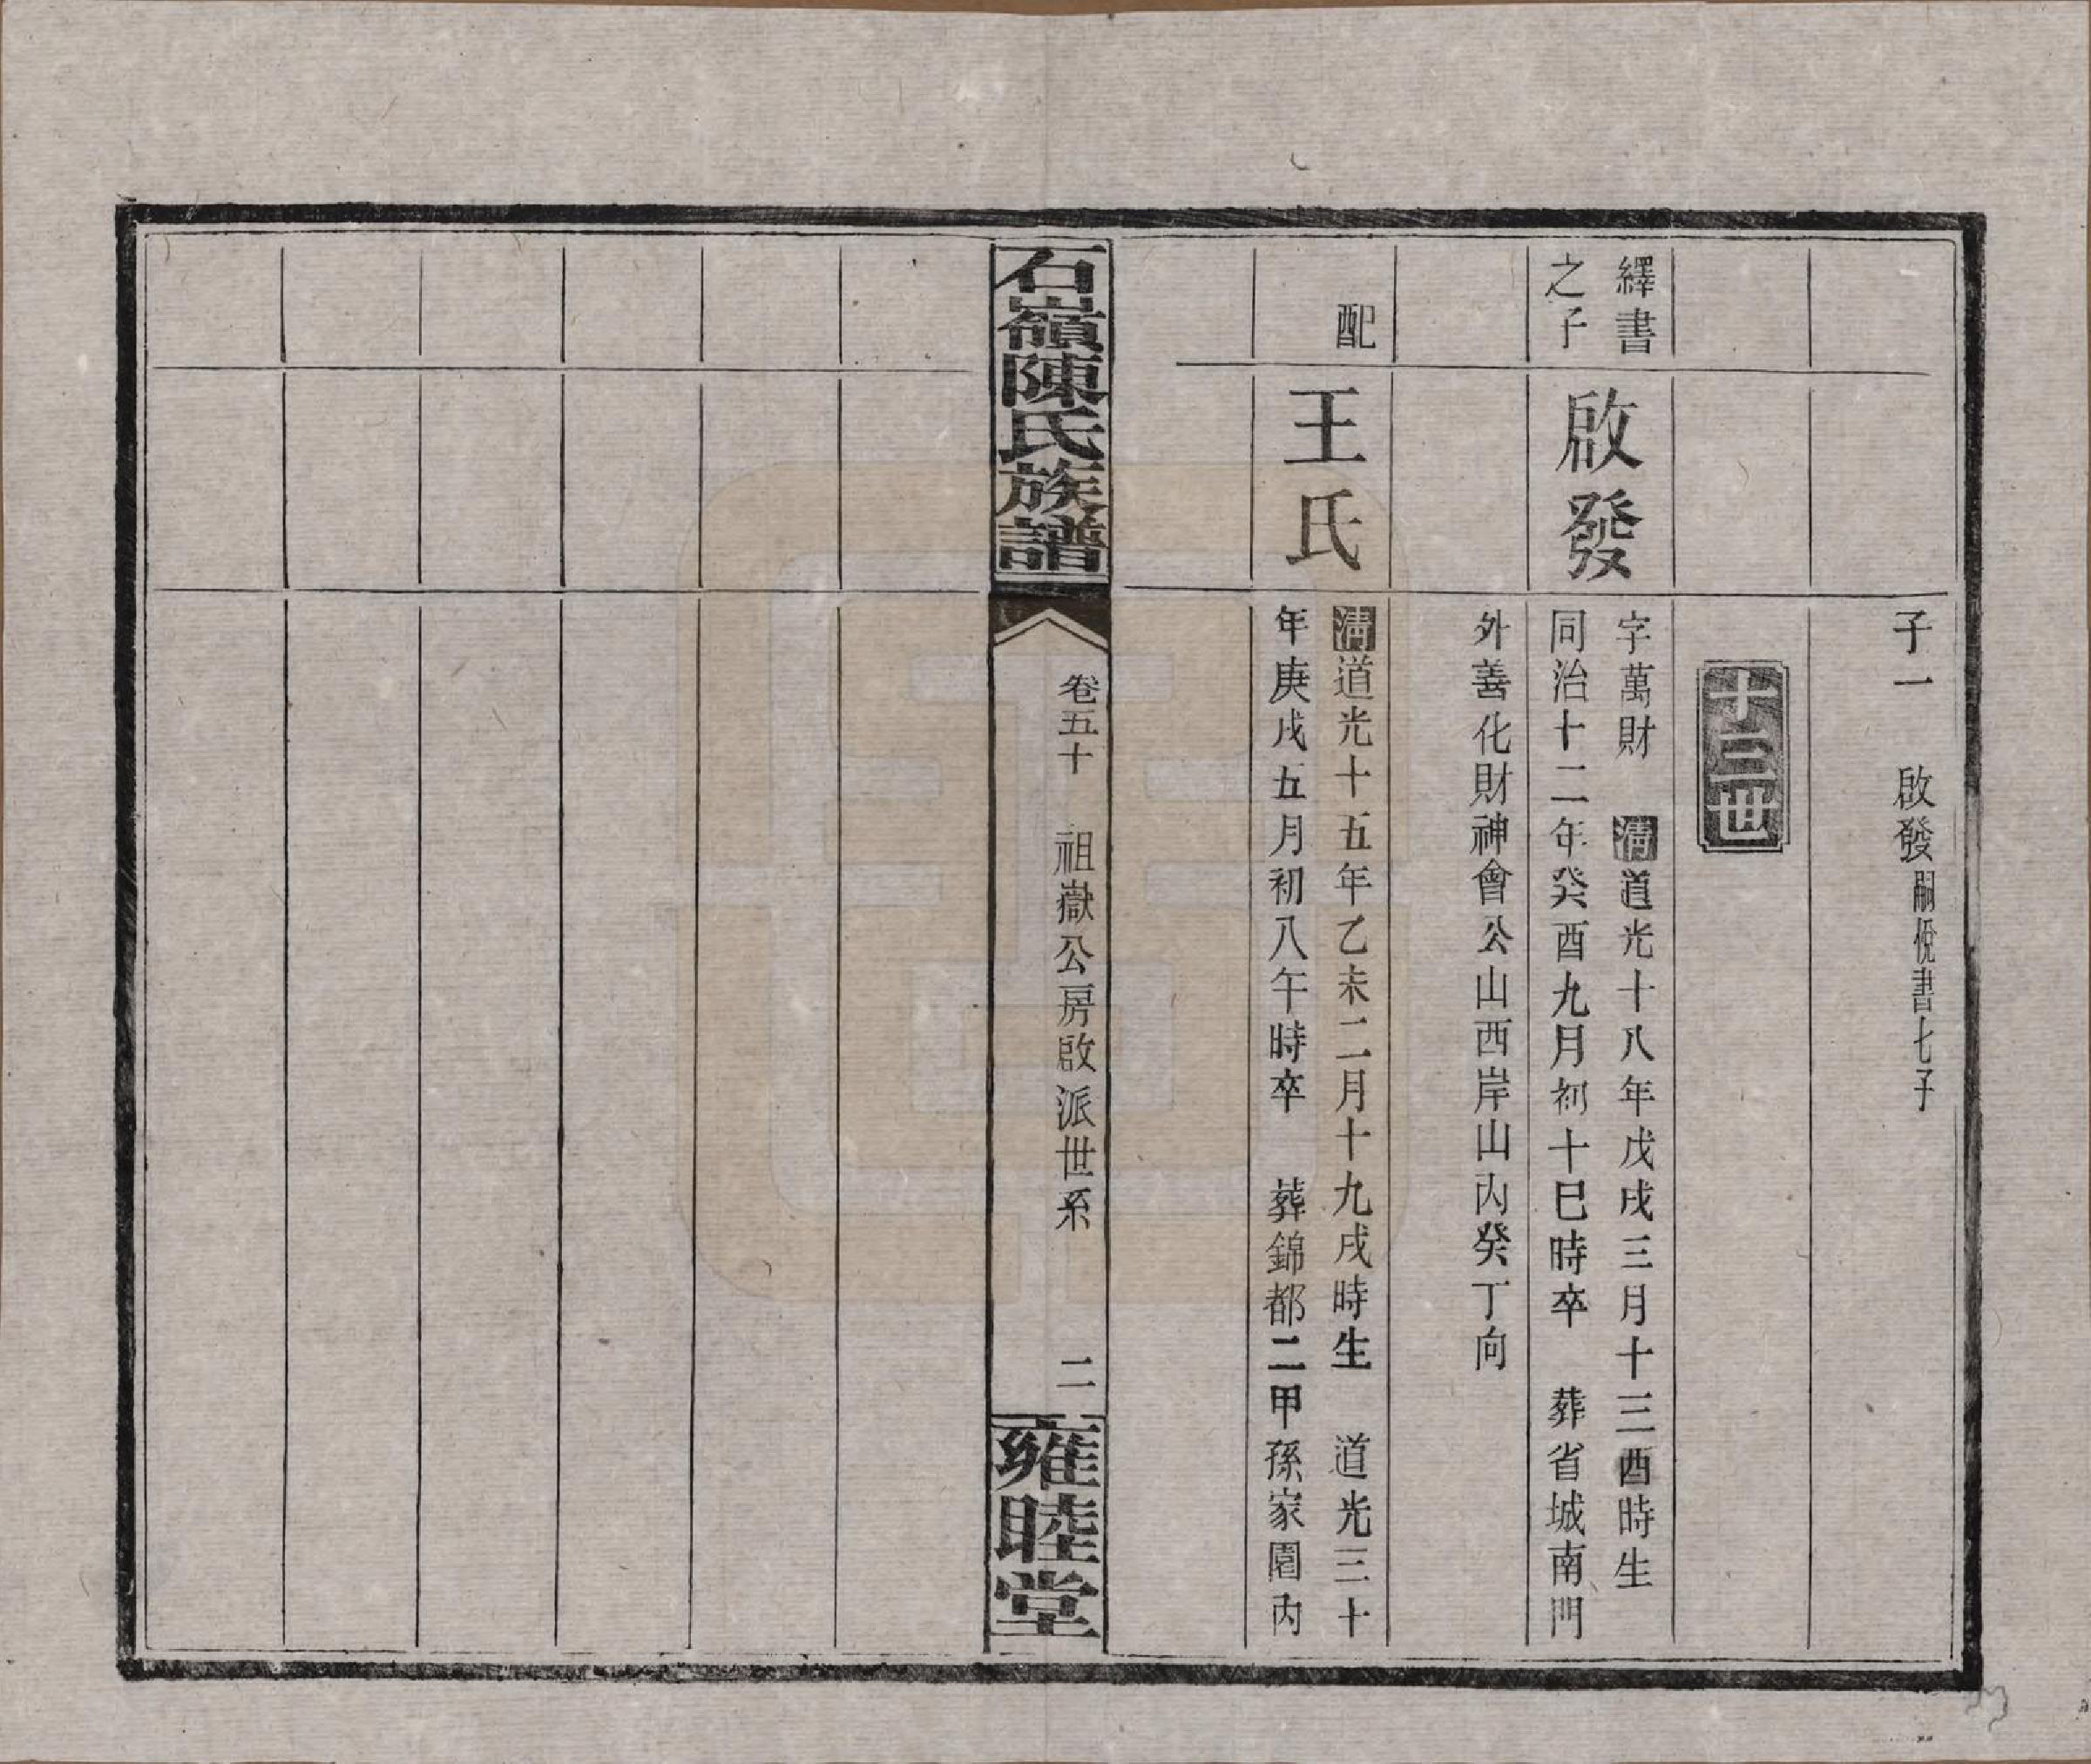 子一　啟發嗣悅書七子
十三世
繹書之子
啟發
字萬財　清道光十八年戊戌三月十三酉時生
同治十二年癸酉九月初十巳時卒　葬省城南門
外善化財神會公山西岸山內癸丁向
配
王氏
清道光十五年乙未二月十九戌時生　道光三十
年庚戌五月初八午時卒　葬錦都二甲孫家園內
石嶺陳氏族譜
卷五十　祖嶽公房啟派世系　二
雍睦堂